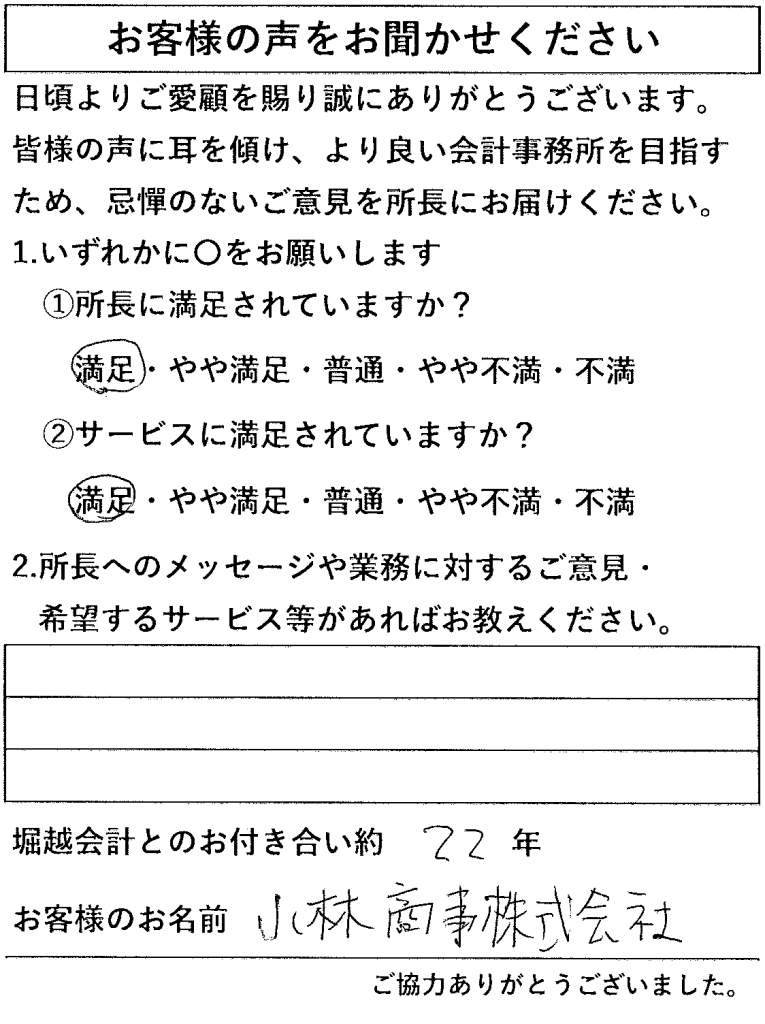 お客様の声をお聞かせください
日頃よりご愛顧を賜り誠にありがとうございます。
皆様の声に耳を傾け、より良い会計事務所を目指す
ため、忌憚のないご意見を所長にお届けください。
1.いずれかに〇をお願いします
①所長に満足されていますか？
満足・やや満足・普通・やや不満・不満
②サービスに満足されていますか？
満足・やや満足・普通・やや不満・不満
2.所長へのメッセージや業務に対するご意見・
希望するサービス等があればお教えください。
堀越会計とのお付き合い約 22 年
お客様のお名前 小林商事株式会社
ご協力ありがとうございました。